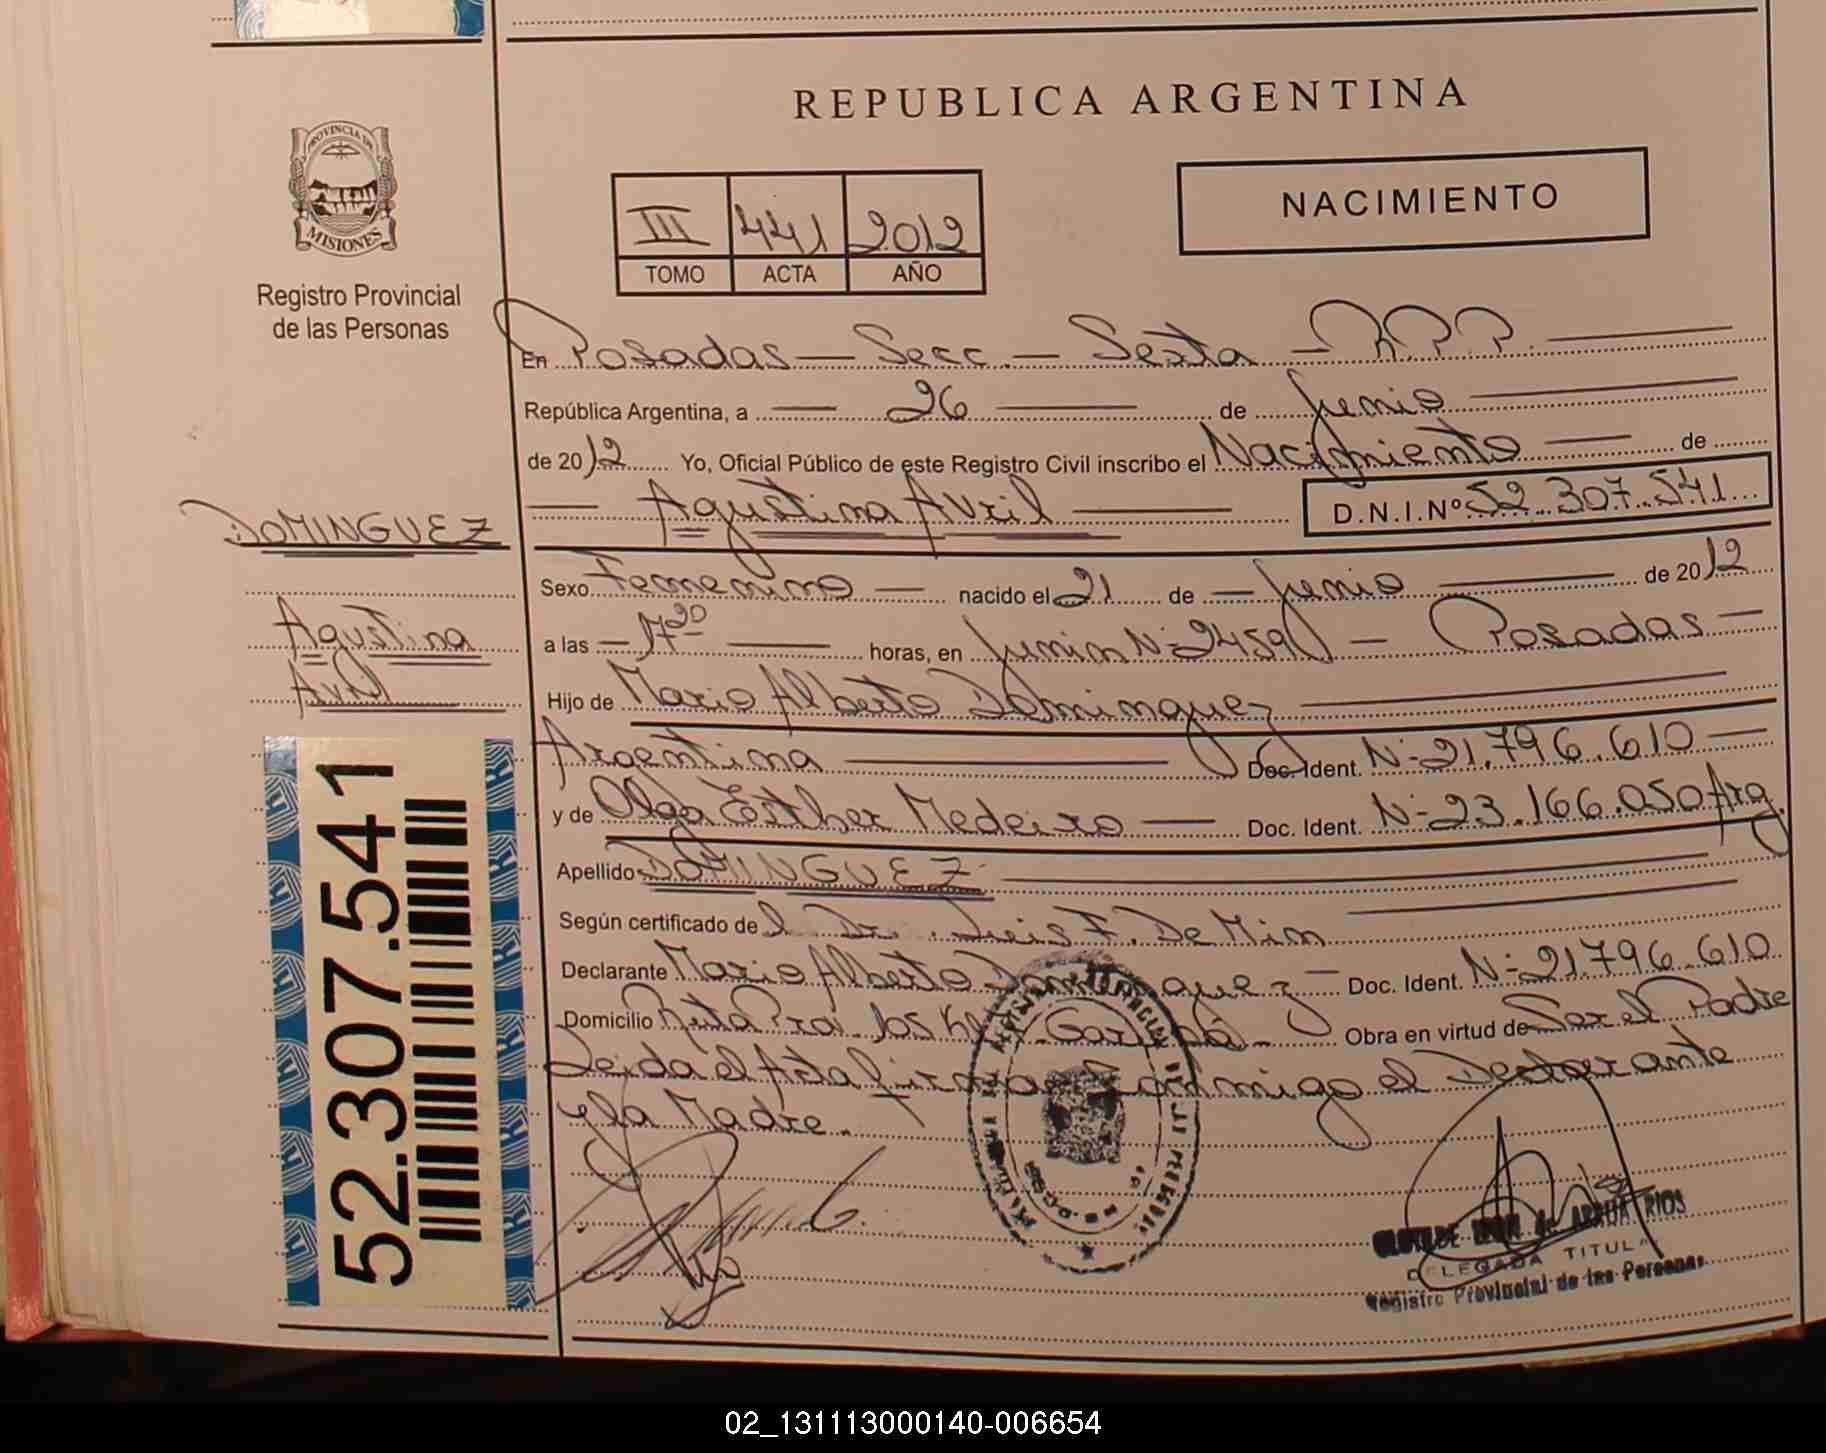 REPUBLICA ARGENTINA
PROVINCIA DE
MISIONES
Registro Provincial
de las Personas
NACIMIENTO
III 441 2012
TOMO ACTA AÑO
En Posadas — Secc. — Sexta — R.P.P.
República Argentina, a — 26 — de Junio
de 2012 Yo, Oficial Público de este Registro Civil inscribo el Nacimiento — de
— Agustina Avril — D.N.I.Nº 52.307.541
DOMINGUEZ
Agustina
Avril
Sexo Femenino — nacido el 21 de — Junio — de 2012
a las — 17 20 — horas, en Junin Nº 2459 — Posadas —
Hijo de Mario Alberto Dominguez
Argentina — Doc. Ident. Nº 21.796.610 —
y de Olga Esther Medeiro — Doc. Ident. Nº 23.166.050 Arg.
Apellido DOMINGUEZ
Según certificado de l Dr. Luis F. De Mim
Declarante Mario Alberto Dominguez — Doc. Ident. Nº 21.796.610
Domicilio Ruta Prov. 105 Garupá — Obra en virtud de Ser el Padre
Leida el Acta firman conmigo el Declarante
y la Madre.
52.307.541
CLOTILDE de ARRUA RIOS
DELEGADA TITULAR
Registro Provincial de las Personas
02_131113000140-006654